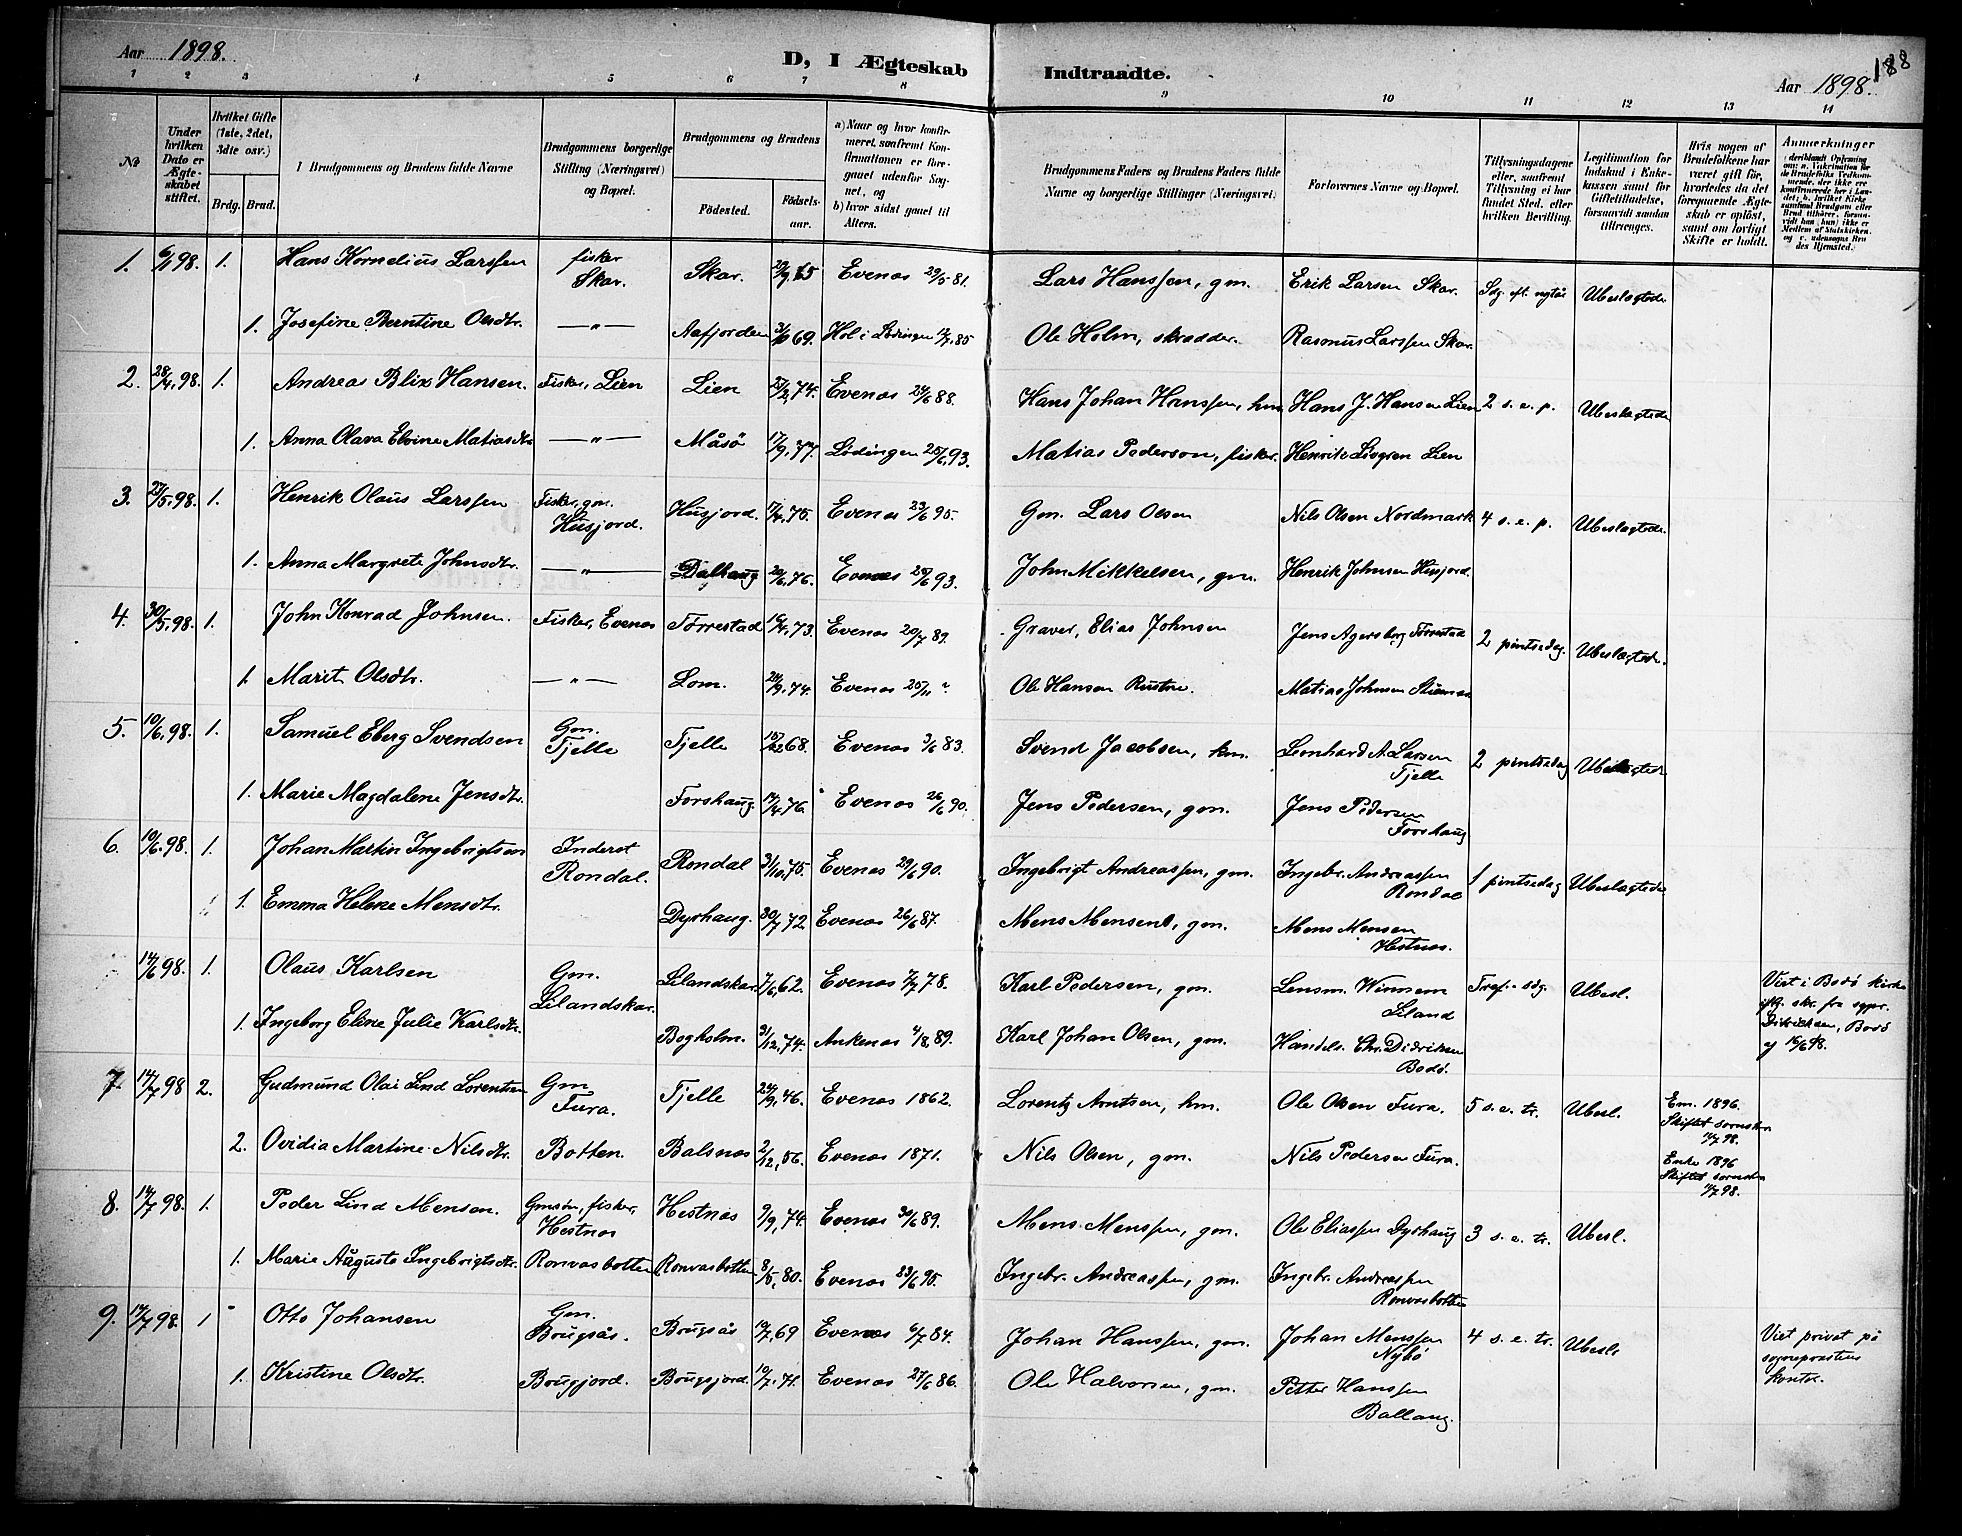 Aar 1898.
D, I Ægteskab Indtraadte.
Aar 1898. 188
1 2 3 4 5 6 7 8 9 10 11 12 13 14
№
Under hvilken Dato er Ægteskabet stiftet.
Hvilket Gifte (1ste, 2det, 3die osv.)
Brdg. Brud.
Brudgommens og Brudens fulde Navne
Brudgommens borgerlige Stilling (Næringsvei) og Bopæl.
Brudgommens og Brudens
Fødested. Fødselsaar.
a) Naar og hvor konfirmeret, saafremt Konfirmationen er foregaaet udenfor Sognet, og
b) hvor sidst gaaet til Alters.
Brudgommens Faders og Brudens Faders fulde Navne og borgerlige Stillinger (Næringsvei)
Forlovernes Navne og Bopæl.
Tillysningsdagene eller, saafremt Tillysning ei har fundet Sted, efter hvilken Bevilling.
Legitimation for Indskud i Enkekassen samt for Giftetilladelse, forsaavidt saadan tiltrænges.
Hvis nogen af Brudefolkene har været gift før, hvorledes da det foregaaende Ægteskab er opløst, samt om lovligt Skifte er holdt.
Anmærkninger
1. 6/1 98. 1. Hans Kornelius Larssen fisker Skar. Skar. 29/9 65 Evenes 29/5 81. Lars Hanssen, gm. Erik Larsen Skar. Sdg. eft. nytår Ubeslægtede
1. Josefine Berntine Olsdtr. —"— Aafjorden 69. Hol i Lødingen 85 Ole Holm, skrædder. Rasmus Larssen Skar.
2. 28/4 98. 1. Andreas Blix Hansen. Fisker, Lien Lien 27/2 74. Evenes 24/6 88. Hans Johan Hanssen, hm. Hans J. Hansen Lien 2 s. e. p. Ubeslægtede
1. Anna Olava Elvine Matiasdtr —"— Måsø 17/9 77. Lødingen 25/6 93. Matias Pederson, fisker. Henrik Livgren Lien
3. 27/5 98. 1. Henrik Olaus Larssen Fisker, gm. Husjord. Husjord. 17/4 75. Evenes 23/6 95. Gm. Lars Olsen Nils Olsen Nordmark 4 s. e. p. Ubeslægtede
1. Anna Margrete Johnsdtr. —"— Dalhaug 20/6 76. Evenes 93. John Mikkelsen, gm. Henrik Johnsen Husjord.
4. 30/5 98. 1. John Konrad Johnsen. Fisker, Evenes Tørrestad 73. Evenes 20/7 89. Graver, Elias Johnsen Jens Agersborg Tørrestad 2 pintsedag. Ubeslægtede.
1. Marit Olsdtr. —"— Lom. 24/9 74. Evenes 25/11 Ole Hansen Rusten. Matias Johnsen
5. 10/6 98. 1. Samuel Eberg Svendsen Gm. Tjelle Tjelle 68. Evenes 3/6 83. Svend Jacobsen, hm. Leonhard A. Larsen Tjelle 2 pintsedag Ubeslægtede
1. Marie Magdalene Jensdtr. Forshaug. 14/4 76. Evenes 26/6 90. Jens Pedersen, gm. Jens Pedersen Forshaug
6. 10/6 98. 1. Johan Martin Ingebrigtsen Inderst Rondal. Rondal 31/10 75. Evenes 29/6 90. Ingebrigt Andreassen, gm. Ingebr. Andreassen Rondal 1 pintsedag Ubeslægtede
1. Emma Helene Mensdtr. Dyrhaug. 30/7 72 Evenes 26/6 87. Mens Mensen, gm. Mens Mensen Hestnes.
14/6 98. 1. Olaus Karlsen Gm. Lilandskar. Lilandskar. 7/6 62. Evenes 7/7 78. Karl Pedersen, gm. Lensm. Liland Tref. sdg. Ubesl. Viet i Bodø kirke iflg. skr. fra sogpr. Didriksen, Bodø af 16/6 98.
1. Ingeborg Eline Julie Karlsdtr. Bogholm. 31/12 74. Ankenes 4/8 89. Karl Johan Olsen, gm. Handels. Chr. Didriksen Bodø.
7. 14/7 98 2. Gudmund Olai Lind Lorentsen Gm Tura. Tjelle 24/9 46. Evenes 1862. Lorentz Arntsen, hm. Ole Olsen Tura. 5 s. e. tr. Ubesl. Em. 1896. Skiftet 98.
2. Ovidia Martine Nilsdtr. Botten. Balsnes 2/12 56. Evenes 1871. Nils Olsen, gm. Nils Pedersen Tura. Enke 1896 Skiftet 98.
8. 14/7 98. 1. Peder Lind Mensen. Gmsøn, fisker, Hestnes Hestnes 9/9 74. Evenes 30/6 89. Mens Menssen, gm. Ole Eliassen Dyrhaug 3 s. e. tr. Ubesl.
1. Marie Augusta Ingebrigtsdtr. Ronvasbotten Ronvasbotten 8/5 80. Evenes 23/6 95. Ingebr. Andreassen, gm. Ingebr. Andreassen Ronvasbotten
9. 17/7 98. 1 Otto Johansen Gm. Brugsås. Brugsås 69 Evenes 6/7 84. Johan Hanssen, gm. Johan Menssen Nybø 4 s. e. tr. Ubesl. Viet privat på sogneprestens kontor.
1. Kristine Olsdtr. Brugjord. Brugsjord. 10/7 71. Evenes 27/6 86. Ole Halvorsen, gm. Petter Hanssen Ballang.